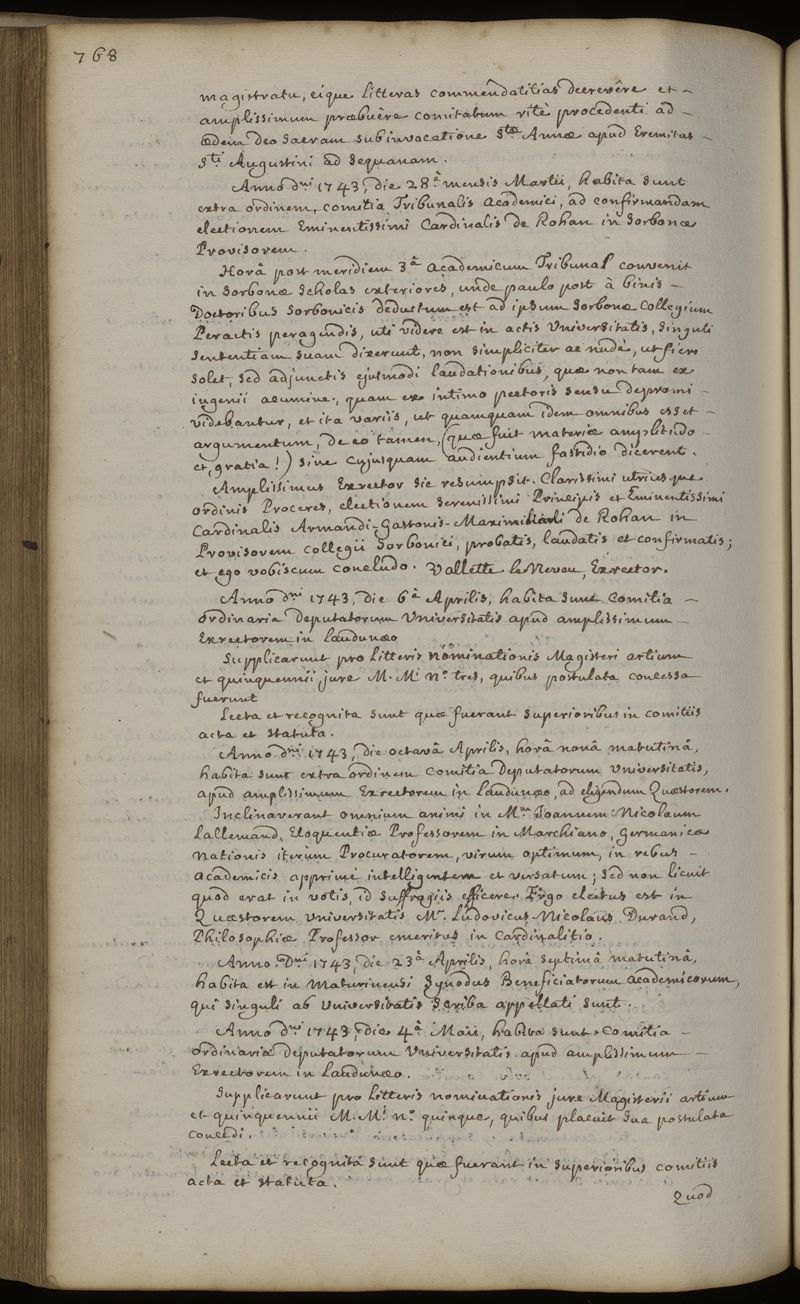 768
magistratu, eique litteras commendatitias decrevêre et -
amplissimum præbuêre comitatum ritè procedenti ad -
ædem deo sacram sub invocatione Stæ Annæ apud Eremitas -
Sti Augustini ad Sequanam.
Anno dni 1743, die 28â mensis Martii, habita sunt
extra ordinem, comitia Tribunalis Academici, ad confirmandam
electionem Eminentissimi Cardinalis de Rohan in Sorbonæ
Provisorem.
Horâ post meridiem 3â Academicum Tribunal convenit
in Sorbonæ Scholas exteriores, unde paulo post à binis -
Doctoribus Sorbonicis deductum est ad ipsum Sorbonæ Collegium
Peractis peragendis, uti videre est in actis Universitatis, Singuli
Sententiam suam dixerunt, non simpliciter ac nudè, ut fieri
solet, sed adjunctis ejusmodi laudationibus, quæ non tam ex
ingenii acumine, quam ex intimo pectoris sensu depromi -
videbantur, et ita variis, ut quamquam idem omnibus esset -
argumentum, de eo tamen, (quæ fuit materiæ amplitudo -
et gratia!) sine cujusquam audientium fastidio dicerent.
Amplissimus Exrector sic resumpsit. Clarissimi utriusque
ordinis Proceres, electionem serenissimi Principis et Eminentissimi
Cardinalis Armandi-Gastonis-Maximiliani de Rohan in
Provisorem collegii Sorbonici, probatis, laudatis et confirmatis;
et ego vobiscum concludo. Vallette le Neveu, Exrector.
Anno dni 1743, die 6â Aprilis, habita sunt Comitia -
ordinaria Deputatorum Universitatis apud amplissimum -
Exrectorem in Laudunæo
Supplicarunt pro Litteris nominationis Magisteri artium
et quinquennii jure M. Mi no tres, quibus postulata concessa
fuerunt
Lecta et recognita sunt quæ fuerant superioribus in comitiis
acta et statuta.
Anno dni 1743, die octavâ Aprilis, horâ nonâ matutinâ,
habita sunt extra ordinem Comitia Deputatorum Universitatis,
apud amplissimum Exrectorem in Laudunæo, ad eligendum Quæstorem.
Inclinaverant omnium animi in Mum Joannem Nicolaum
Lallemand, Eloquentiæ Professorem in Marchiano, Germanicæ
nationis iterùm Procuratorem, virum optimum, in rebus -
academicis apprimè intelligentem et versatum; sed non licuit
quod erat in votis, id suffragiis efficere. Ergo electus est in
Quæstorem Universitatis Mr. Ludovicus Nicolaüs Durand,
Philosophiæ Professor emeritus in Cardinalitio.
Anno Dni 1743, die 23â Aprilis, horâ septimâ matutinâ,
habita est in Maturinensi Synodus Beneficiatorum academicorum,
qui singuli ab Universitatis Scriba appellati sunt.
Anno dni 1743, die 4â Maii, habita sunt Comitia -
ordinariæ Deputatorum Universitatis apud amplissimum -
Exrectorem in Laudunæo.
Supplicarunt pro Litteris nominationis jure Magisterii artium
et quinquennii M. Mi no quinque, quibus placuit sua postulata
concedi.
Lecta et recognita sunt quæ fuerant in superioribus comitiis
acta et statuta.
Quod